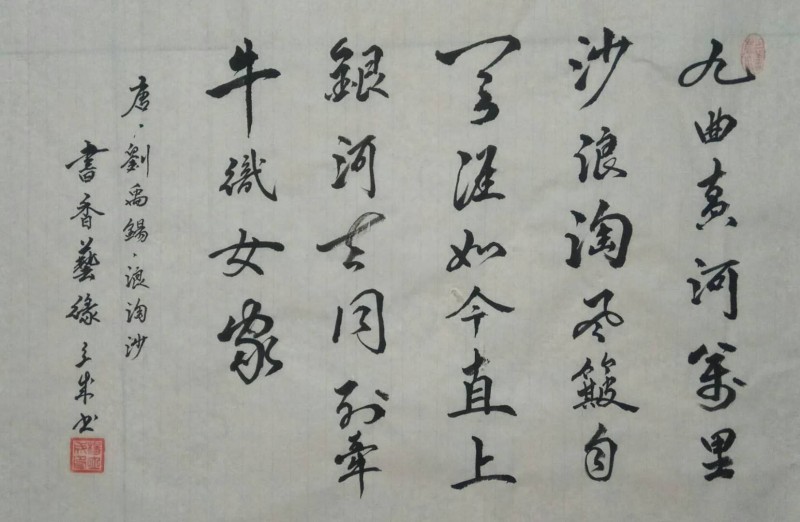 九曲黄河萬里
沙浪淘风簸自
天涯如今直上
銀河去同到牵
牛織女家
唐、劉禹錫、浪淘沙
書香藝緣 成书